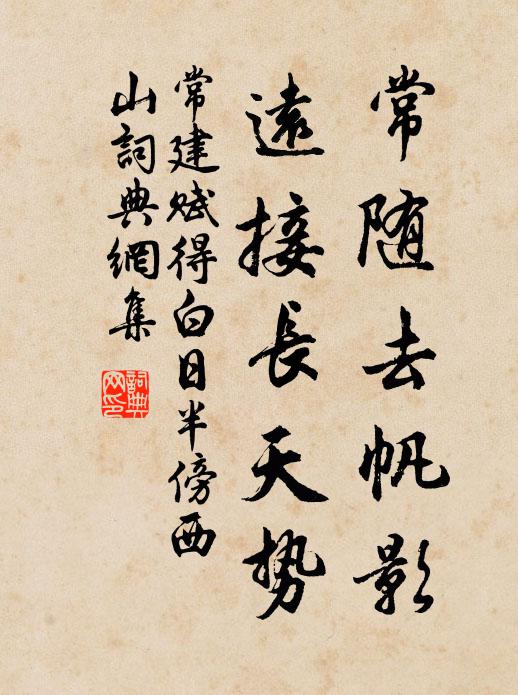 常随去帆影
遠接長天势
常建赋得白日半傍西
山詞典網集
詞典网印